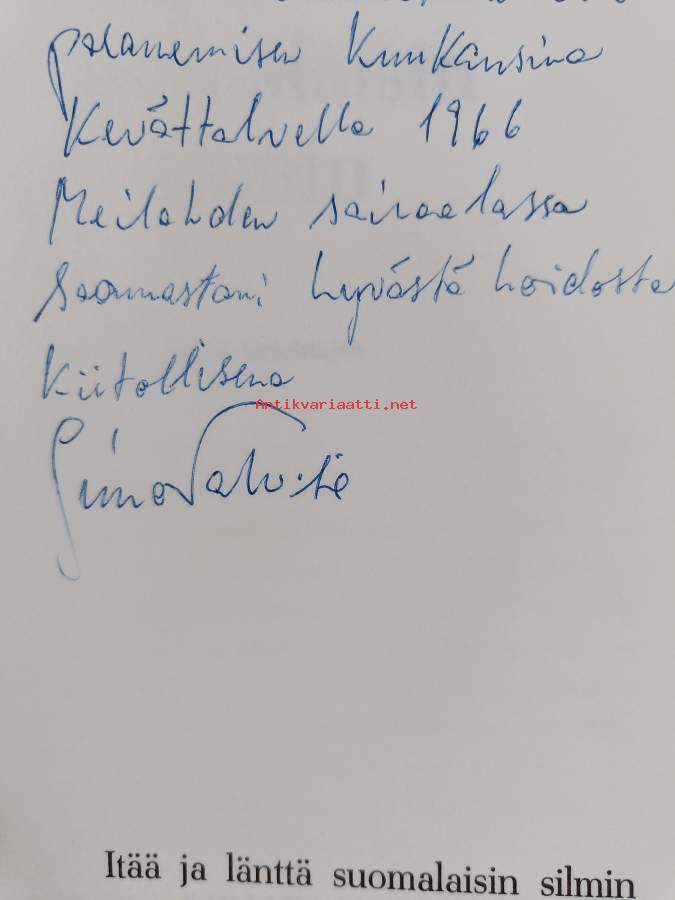 palanemisen Kuukausina
Kevättalvella 1966
Meilahden sairaalassa
saamastani hyvästä hoidosta
Kiitollisena
Antikvariaatti.net
Simo Talvitie
Itää ja länttä suomalaisin silmin